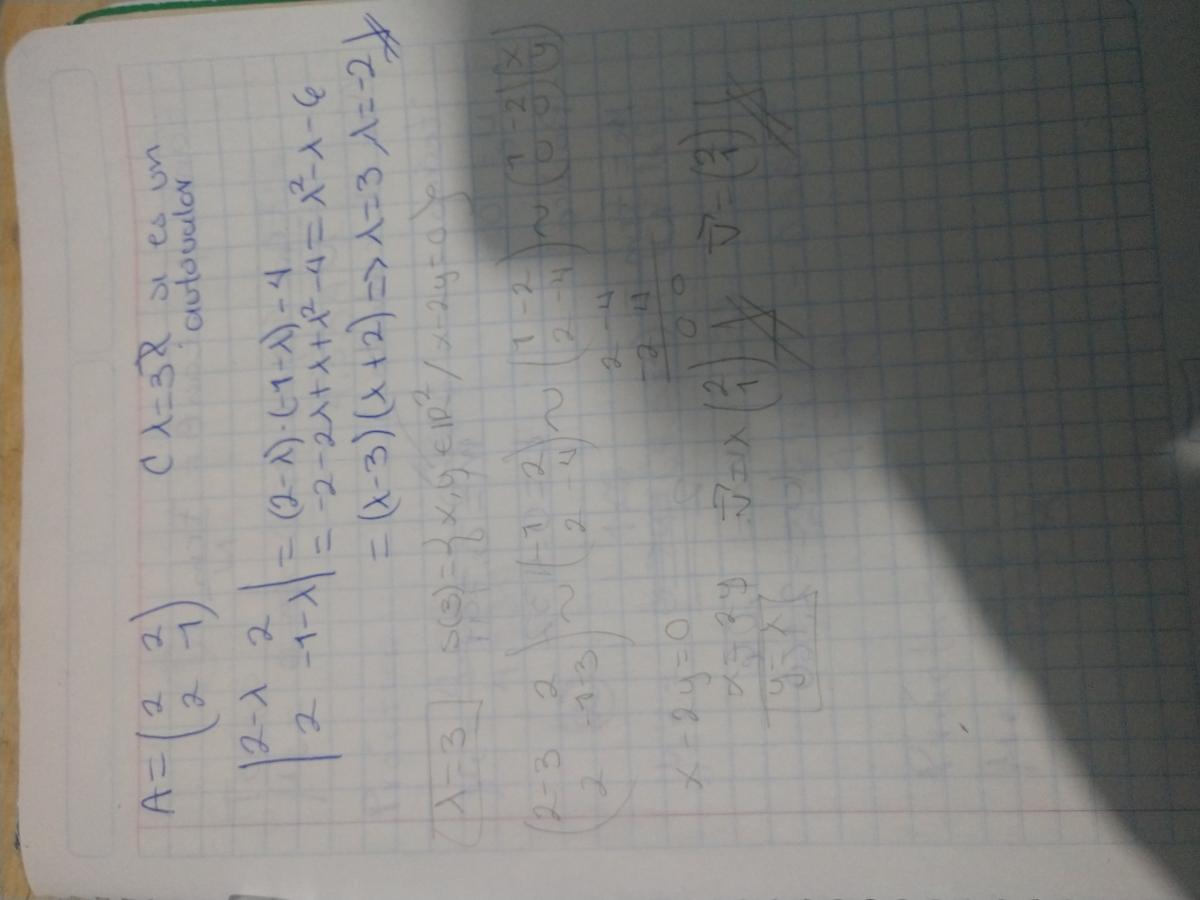 A = (2 2
2 -1) ¿ λ=3 si es un
autovalor
|2-λ 2
2 -1-λ| = (2-λ)·(-1-λ)-4
= -2-2λ+λ+λ²-4=λ²-λ-6
= (λ-3)(λ+2)=> λ=3, λ=-2
λ=3 S(3)={x,y ∈ R² / x-2y=0}
(2-3 2
2 -1-3) ~ (-1 2
2 -4) ~ (1 -2
2 -4) ~ (1 -2
0 0) (x
y)
2 -4
-2 4
0 0
x-2y=0
x=2y
y=λ
v=λ(2
1) v=(2
1)